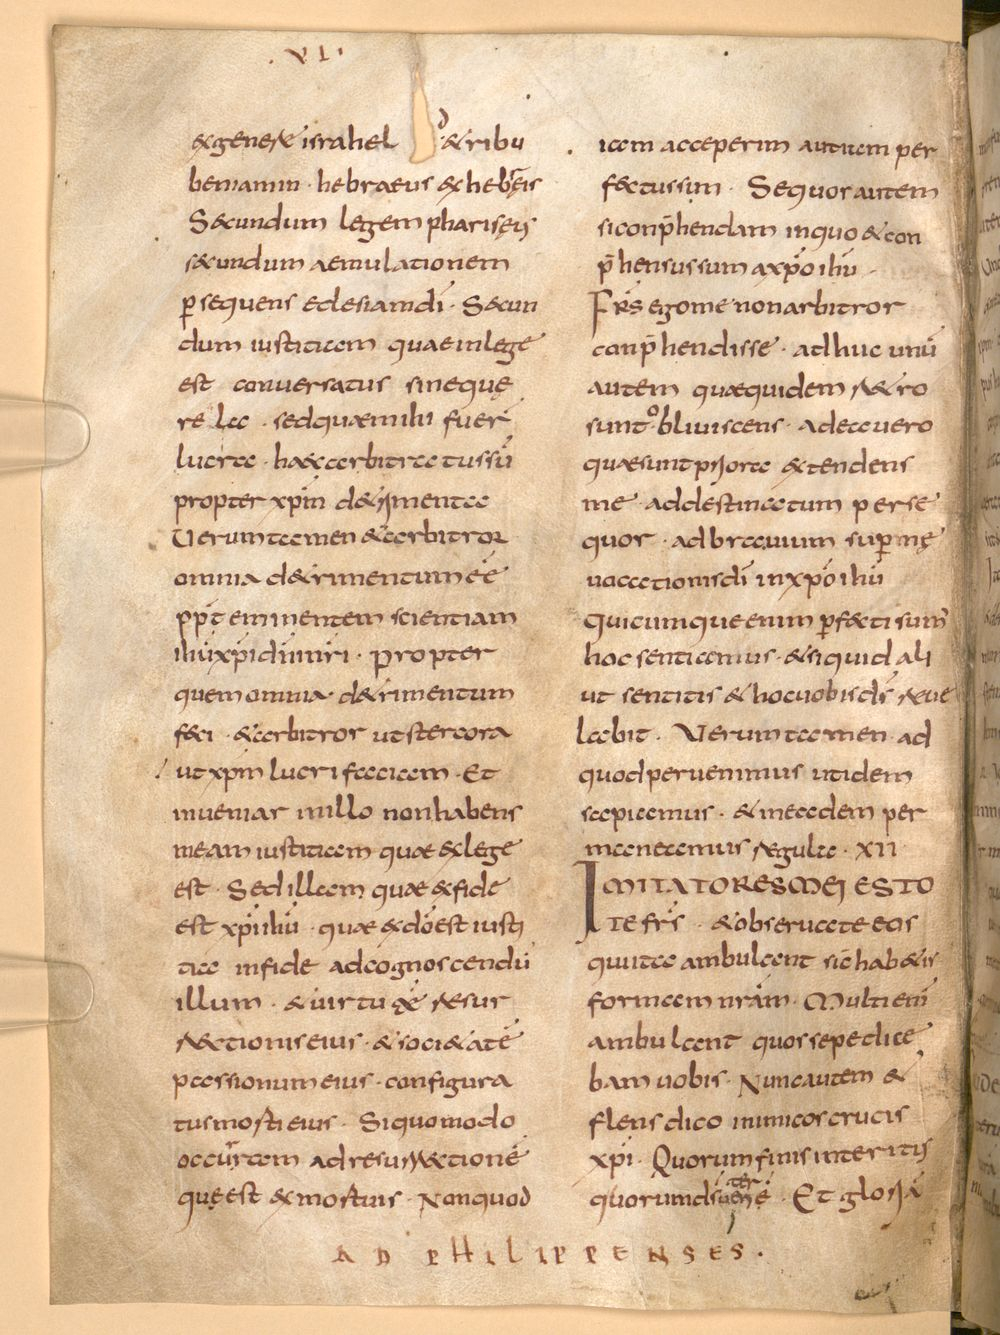 · VI ·
& genere israhel d& ribu
beniamin · hebraeus ex hebreis
Secundum legem phariseus
secundum aemulationem
p̄sequens eclesiam dī · Secun
dum iustitiam quae in lege
est conversatus sine que
rela · sed quae mihi fuer̄
lucra · haec arbitratus sū
propter xp̄m detrimenta
Verumtamen & arbitror
omnia detrimentum eē
pp̄t eminentem scientiam
ihū xp̄i dn̄i mī · Propter
quem omnia detrimentum
feci · & arbitror ut stercora
ut xp̄m lucri faciam · Et
inveniar in illo non habens
meam iustitiam quae ex lege
est · Sed illam quae ex fide
est xp̄i ihū · quae ex dō est iusti
tia in fide ad cognoscendū
illum · & virtutē resur
rectionis eius · & societatē
passionum eius · configura
tus morti eius · Si quo modo
occurram ad resurrectionē
que est ex mortuis · Non quod
iam acceperim aut iam per
fectus sim · Sequor autem
si conp̄hendam in quo & con
p̄hensus sum a xp̄o ihū ·
Fr̄s ego me non arbitror
conp̄hendisse · ad huc unū
autem quae quidem retro
sunt obliviscens · ad ea vero
quae sunt priora extendens
me · ad destinatum perse
quor · ad bravium sup̄nę
vocationis dī in xp̄o ihū
Quicumque enim p̄fecti sum̄
hoc sentiamus · & si quid ali
ut sentitis & hoc vobis ds̄ reve
labit · Verumtamen ad
quod pervenimus ut idem
sapiamus · & in eadem per
maneamus regula · XII
IMITATORES MEI ESTO
TE fr̄s · & observate eos
qui ita ambulant sic̄ habetis
formam nr̄am · Multi eni̅
ambulant quos sepe dice
bam vobis · Nunc autem &
flens dico inimicos crucis
xp̄i · Quorum finis interitus
quorum ds̄ venter ē · Et gloria
AD PHILIPPENSES ·